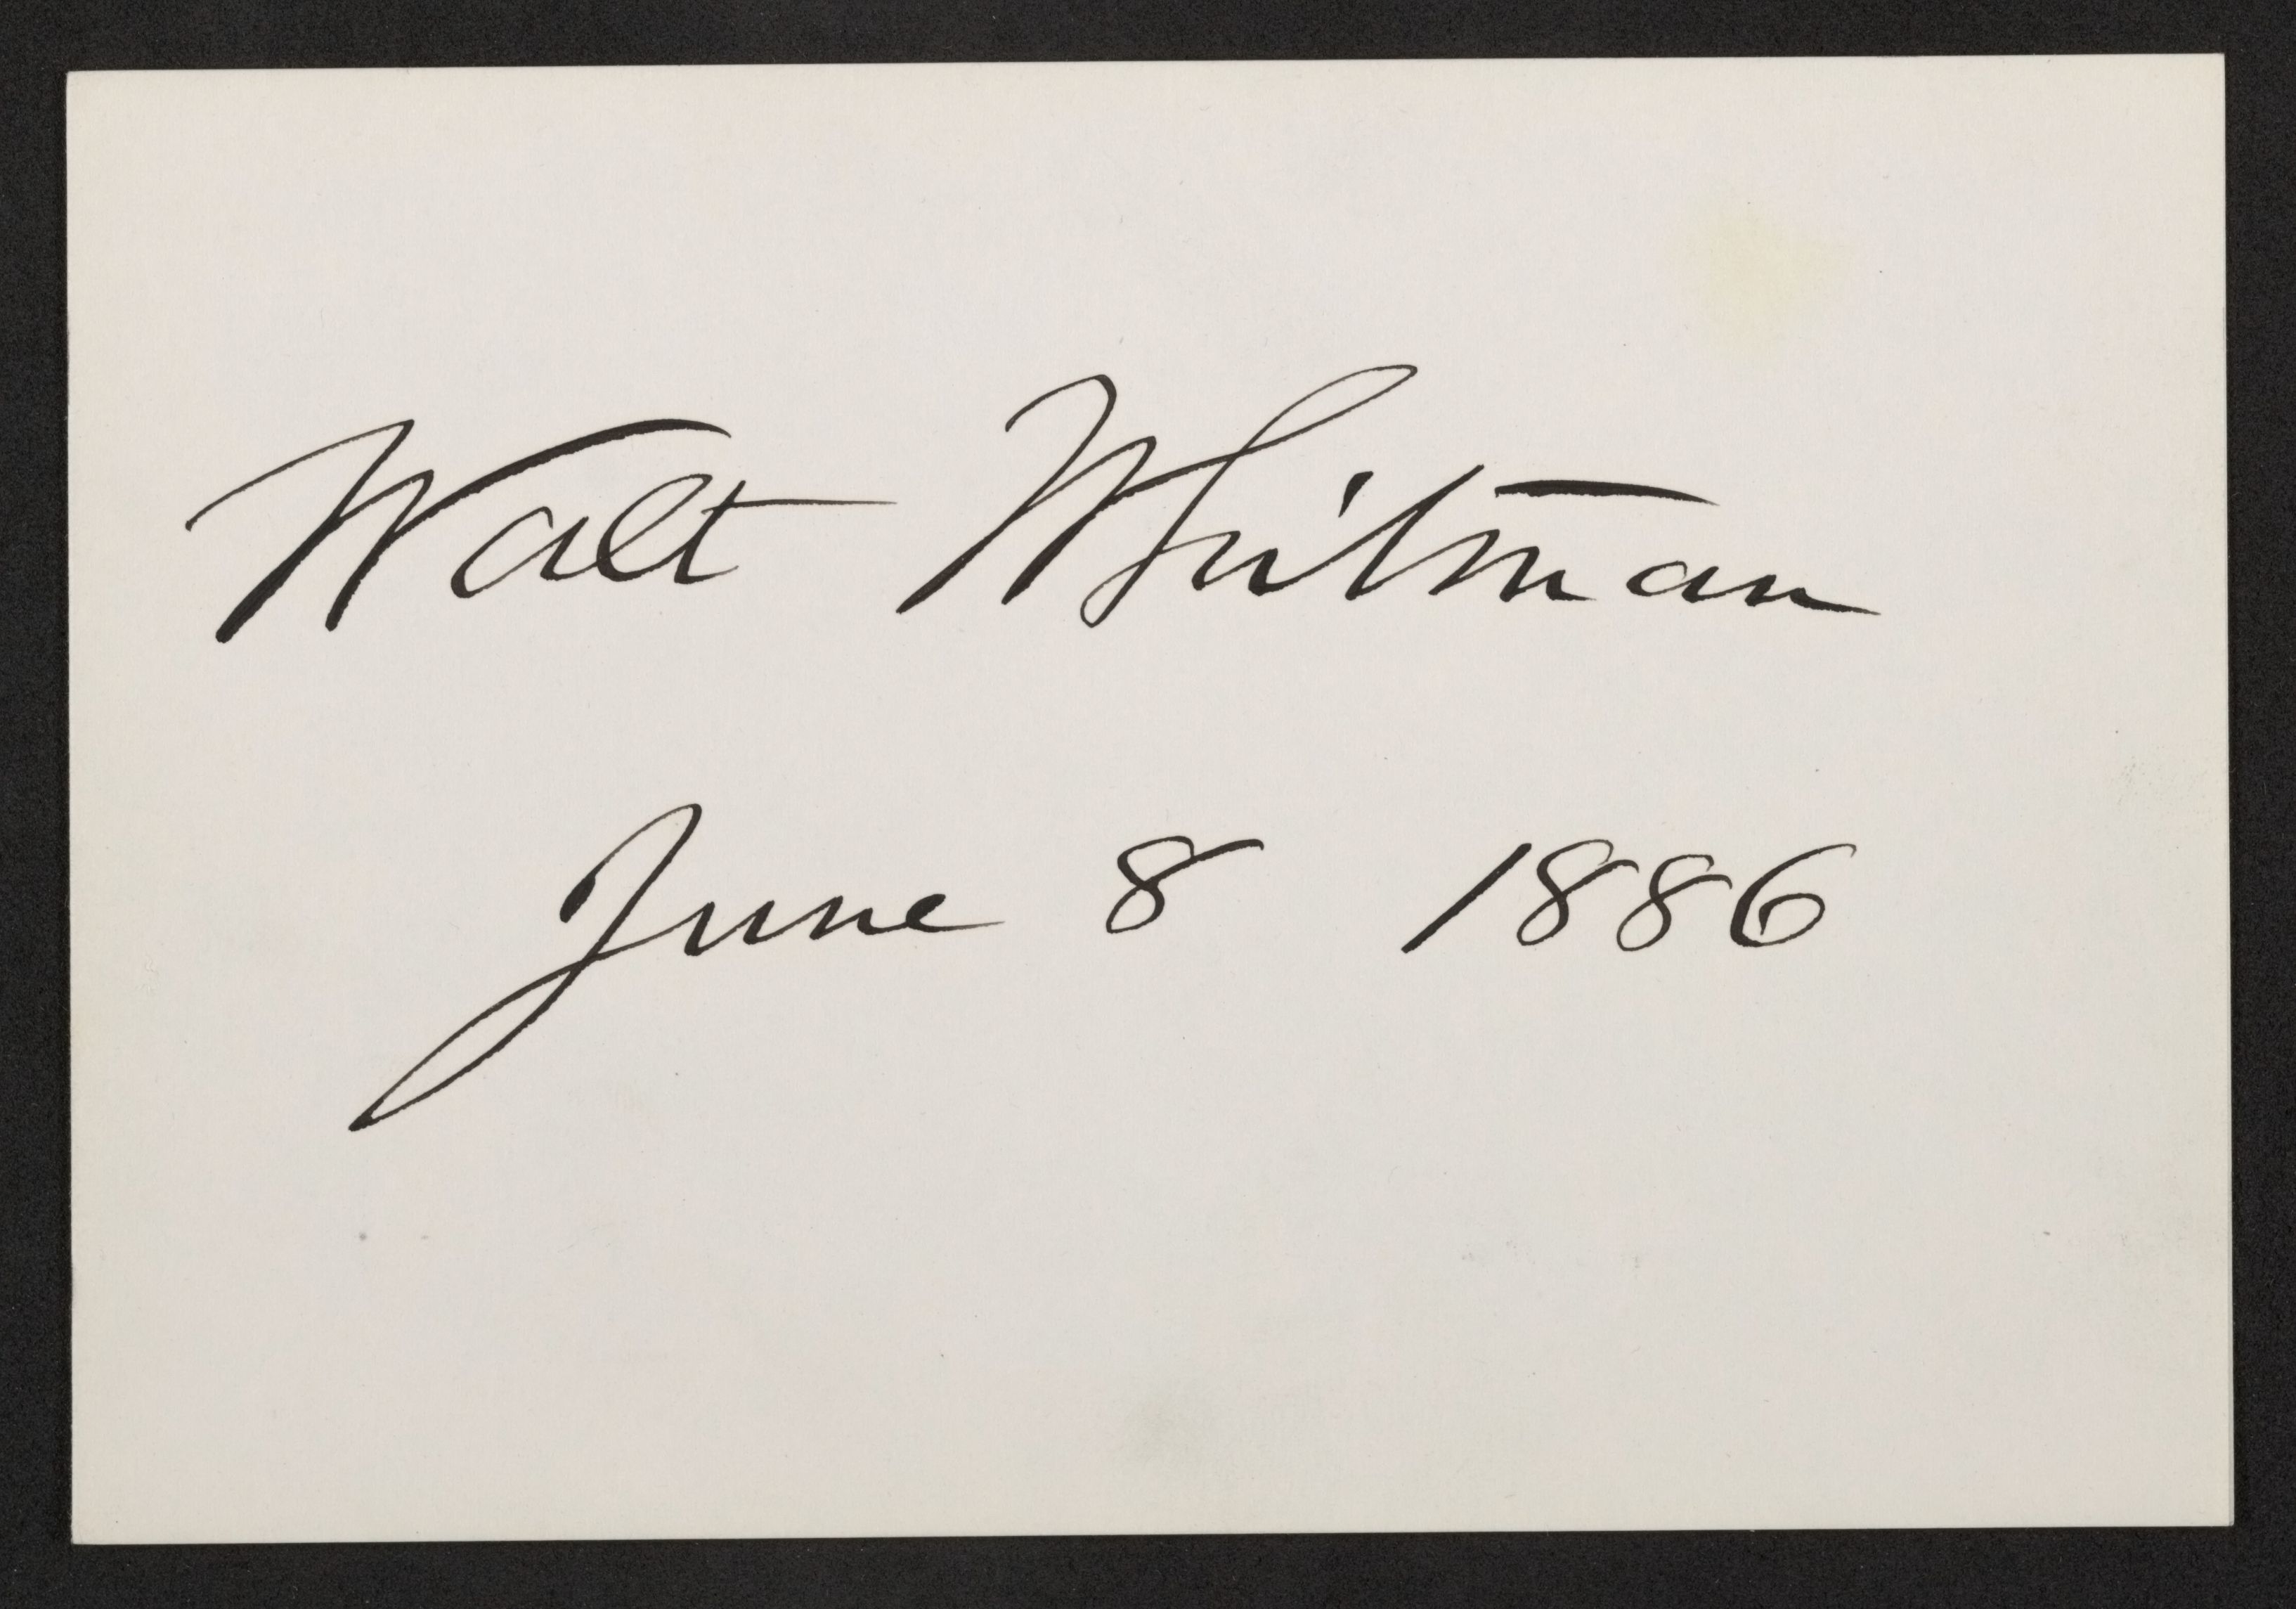 Walt Whitman
June 8 1886